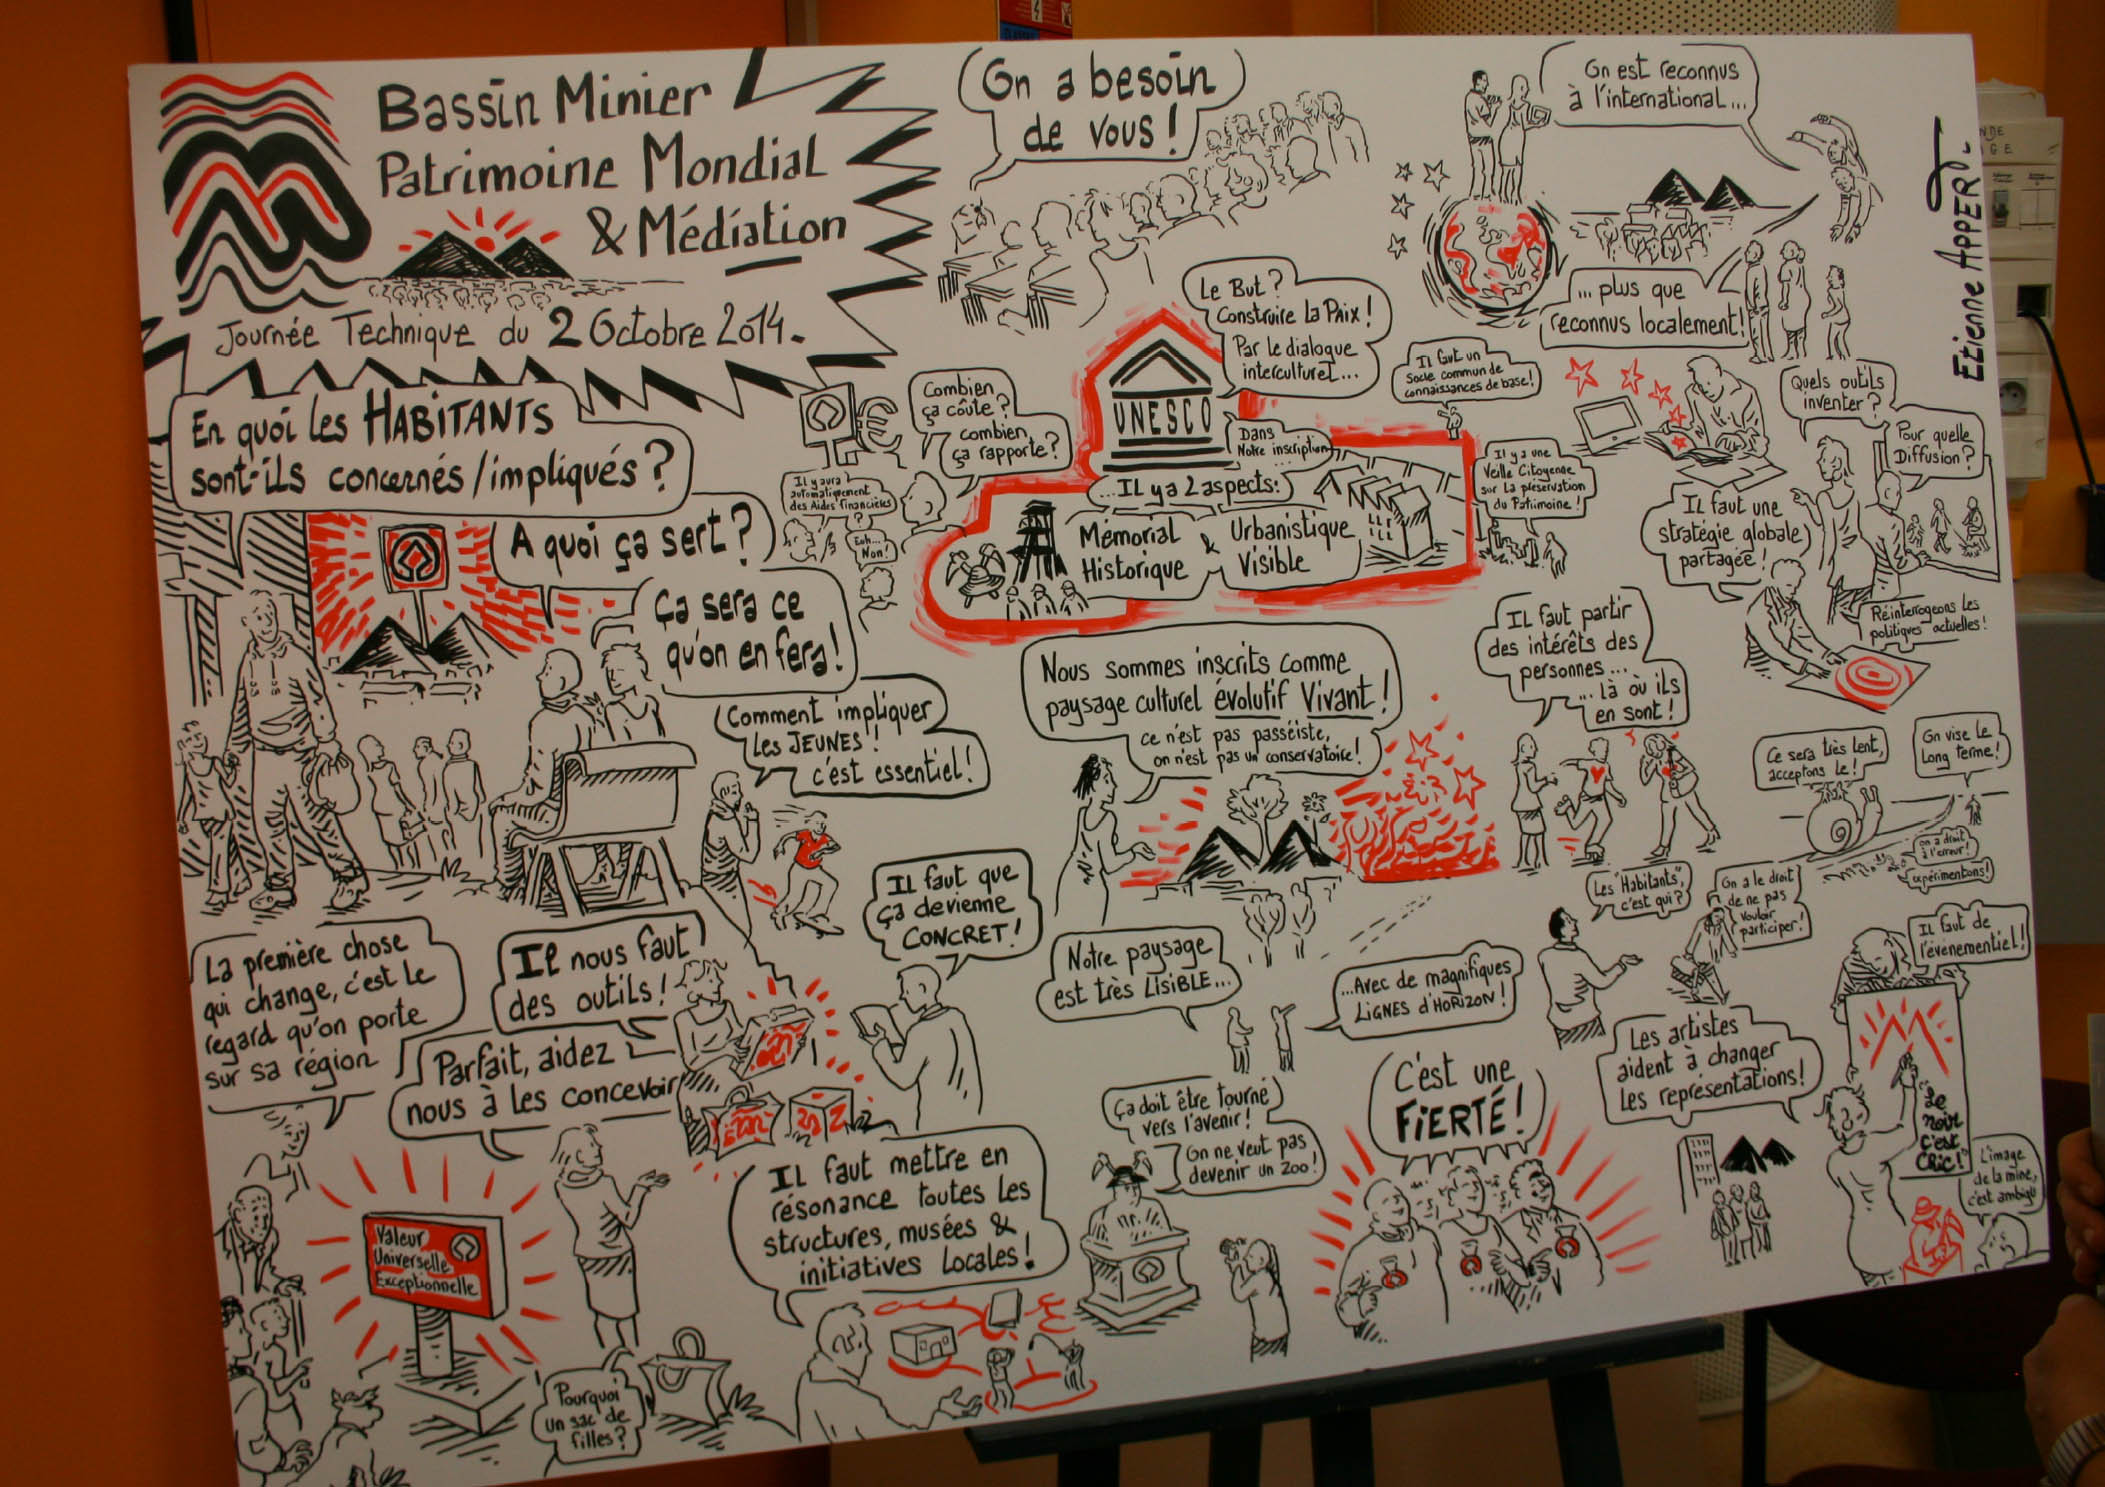 Bassin Minier
Patrimoine Mondial
& Médiation
Journée Technique du 2 Octobre 2014.
On a besoin
de vous !
On est reconnus
à l'international...
... plus que
reconnus localement!
Etienne APPERT
En quoi les HABITANTS
sont-ils concernés/impliqués ?
A quoi ça sert ?
Ça sera ce
qu'on en fera !
Comment impliquer
les JEUNES !
c'est essentiel !
€
Combien
ça coûte ?
combien
ça rapporte ?
Il y aura
automatiquement
des Aides financières
?
Euh...
Non !
UNESCO
Le But ?
Construire la Paix !
Par le dialogue
interculturel...
Dans
Notre inscription
...Il y a 2 aspects :
Mémorial
Historique
&
Urbanistique
Visible
Il faut un
Socle commun de
connaissances de base !
Il y a une
Veille Citoyenne
sur la préservation
du Patrimoine !
Quels outils
inventer ?
Pour quelle
Diffusion ?
Il faut une
stratégie globale
partagée !
Réinterrogeons les
politiques actuelles !
Nous sommes inscrits comme
paysage culturel évolutif Vivant !
ce n'est pas passéiste,
on n'est pas un conservatoire !
Il faut partir
des intérêts des
personnes...
... là où ils
en sont !
Ce sera très lent,
acceptons le !
On vise le
long terme !
on a droit
à l'erreur !
expérimentons !
Les "Habitants",
c'est qui ?
On a le droit
de ne pas
vouloir
participer !
Il faut de
l'événementiel !
La première chose
qui change, c'est le
regard qu'on porte
sur sa région
Il nous faut
des outils !
Parfait, aidez
nous à les concevoir
Il faut que
ça devienne
CONCRET !
Notre paysage
est très LISIBLE...
...Avec de magnifiques
LIGNES d'HORIZON !
Les artistes
aident à changer
les représentations !
Le
noir
c'est
CHIC !
L'image
de la mine,
c'est ambigu
Valeur
Universelle
Exceptionnelle
Il faut mettre en
résonance toutes les
structures, musées &
initiatives locales !
Ça doit être tourné
vers l'avenir !
On ne veut pas
devenir un zoo !
C'est une
FIERTÉ !
Pourquoi
un sac de
filles ?